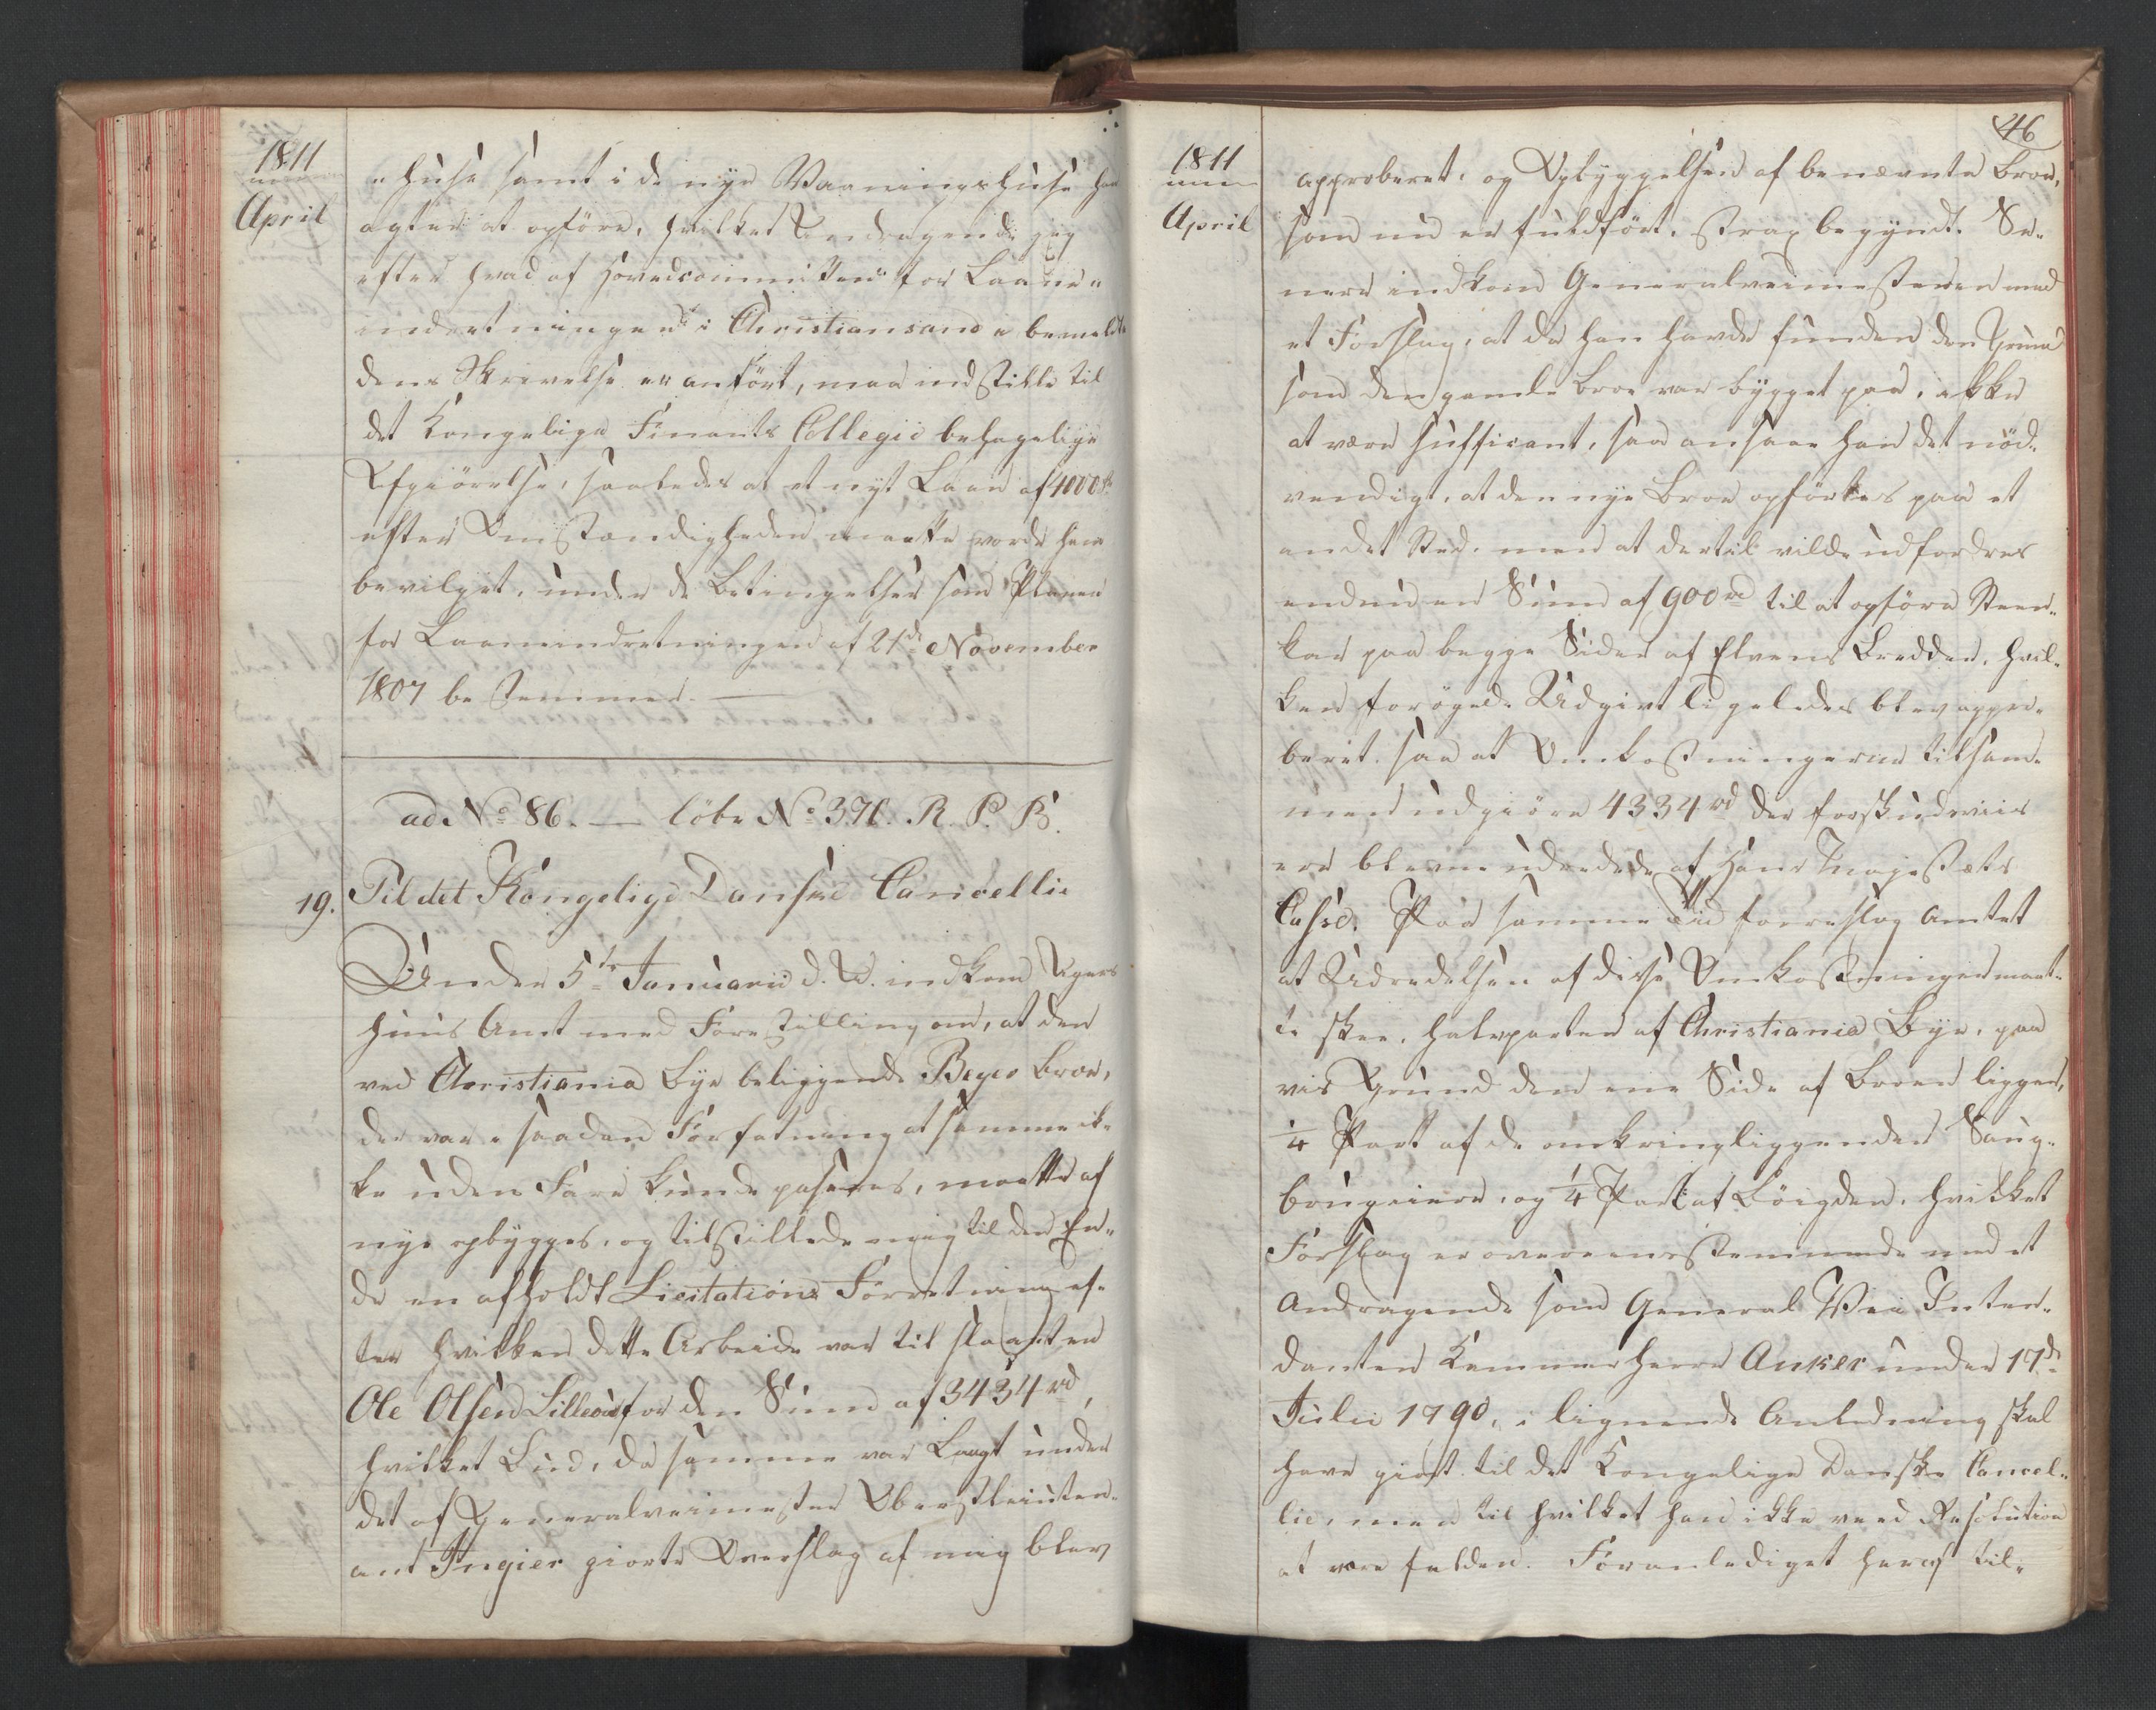 1811
April
"huse samt i de nye Vaaningshuse han
agter at opföre, hvilket Andragende jeg
efter hvad af Hovedcommitteen for Laane"
indretningen i Christiansand i bemeldte
dens Skrivelse er anfört, maa indstille til
det Kongelige Finants Collegii behagelige
Afgiörelse, saaledes at et nyt Laan af 4000 rd
efter Omstændigheden maatte vorde ham
bevilget, under de Betingelser som Planen
for Laaneindretningen af 21de November
1807 bestemmer. —
ad No 86. — löbe No 371. R. P. B.
19. Til det Kongelige Danske Cancellie
Under 5te Januarii d. A. indkom Agers
huus Amt med Forestilling om, at den
ved Christiania Bye beliggende Beyer Broe,
der var i saadan Forfatning at samme ik-
ke uden Fare kunde passeres, maatte af
nye opbygges, og tilstillede mig til den En-
de en afholdt Licitations Forretning ef-
ter hvilken dette Arbeide var tilslaaet en
Ole Olsen for den Sum af 3434 rd,
hvilket Bud, da samme var Langt under
det af Generalveimester Oberstleiuten-
ant Ingier giorte Overslag af mig blev
46
1811
April
approberet, og Opbyggelsen af benævnte Broe,
som nu er fuldfört, strax begyndt. Se-
nere indkom Generalveimesteren med
et Forslag, at da han havde funden den Grund
som den gamle Broe var bygget paa, ikke
at være sufficant, saa ansaae han det nöd-
vendigt, at den nye Broe opförtes paa et
andet Sted, men at dertil vilde udfordres
endnu en Sum af 900 rd til at opföre Steen-
kar paa begge Sider af Elvens Bredder, hvil-
ken forögede Udgivt ligeledes blev appro-
beret, saa at Omkostningerne tilsam-
men udgiöre 4334 rd der forskudsviis
ere blevne udredede af Hans Majestæts
Casse. Paa samme Tid foreslog Amtet
at Udredelsen af disse Omkostninger maat-
te skee, halvparten af Christiania Bye, paa
vis Grund den ene Side af Broen ligger,
1/4 Part af de omkringliggende Saug-
brugeiere, og 1/4 Part af Böigden, hvilket
Forslag er overeensstemmende med et
Andragende som General Vei Inten-
danten Kammerherre Anker under 17de
Julii 1790, i lignende Anledning skal
have giort til det Kongelige Danske Cancel-
lie, men til hvilket han ikke veed Resolution
at være falden. Foranlediget heraf til-